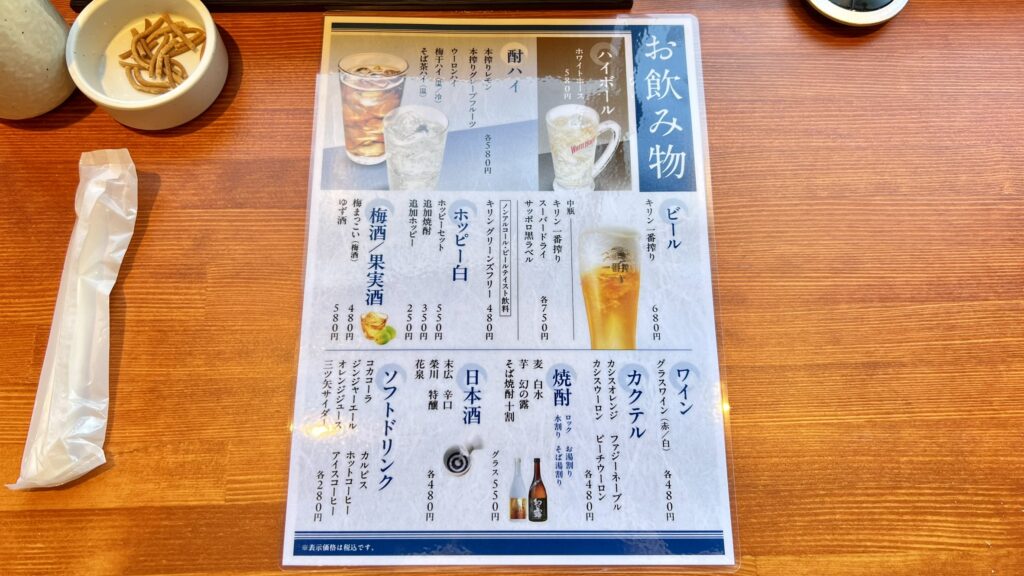 お飲み物
ハイボール
ホワイトホース
580円
酎ハイ
本搾りレモン
本搾りグレープフルーツ
ウーロンハイ
梅干ハイ(温/冷)
そば茶ハイ(温)
各580円
ビール
キリン 一番搾り
680円
中瓶
キリン 一番搾り
スーパードライ
サッポロ黒ラベル
各750円
ノンアルコール・ビールテイスト飲料
キリン グリーンズフリー 480円
ホッピー白
ホッピーセット 550円
追加焼酎 350円
追加ホッピー 250円
梅酒/果実酒
梅まっこい(梅酒) 480円
ゆず酒 580円
ワイン
グラスワイン(赤/白)
各480円
カクテル
カシスオレンジ ファジーネーブル
カシスウーロン ピーチウーロン
各480円
焼酎
ロック お湯割り
水割り そば湯割り
麦 白水
芋 幻の露
そば焼酎 十割
グラス 550円
日本酒
末広 辛口
榮川 特醸
花泉
各480円
ソフトドリンク
コカコーラ
ジンジャーエール
オレンジジュース
三ツ矢サイダー
カルピス
ホットコーヒー
アイスコーヒー
各280円
※表示価格は税込です。